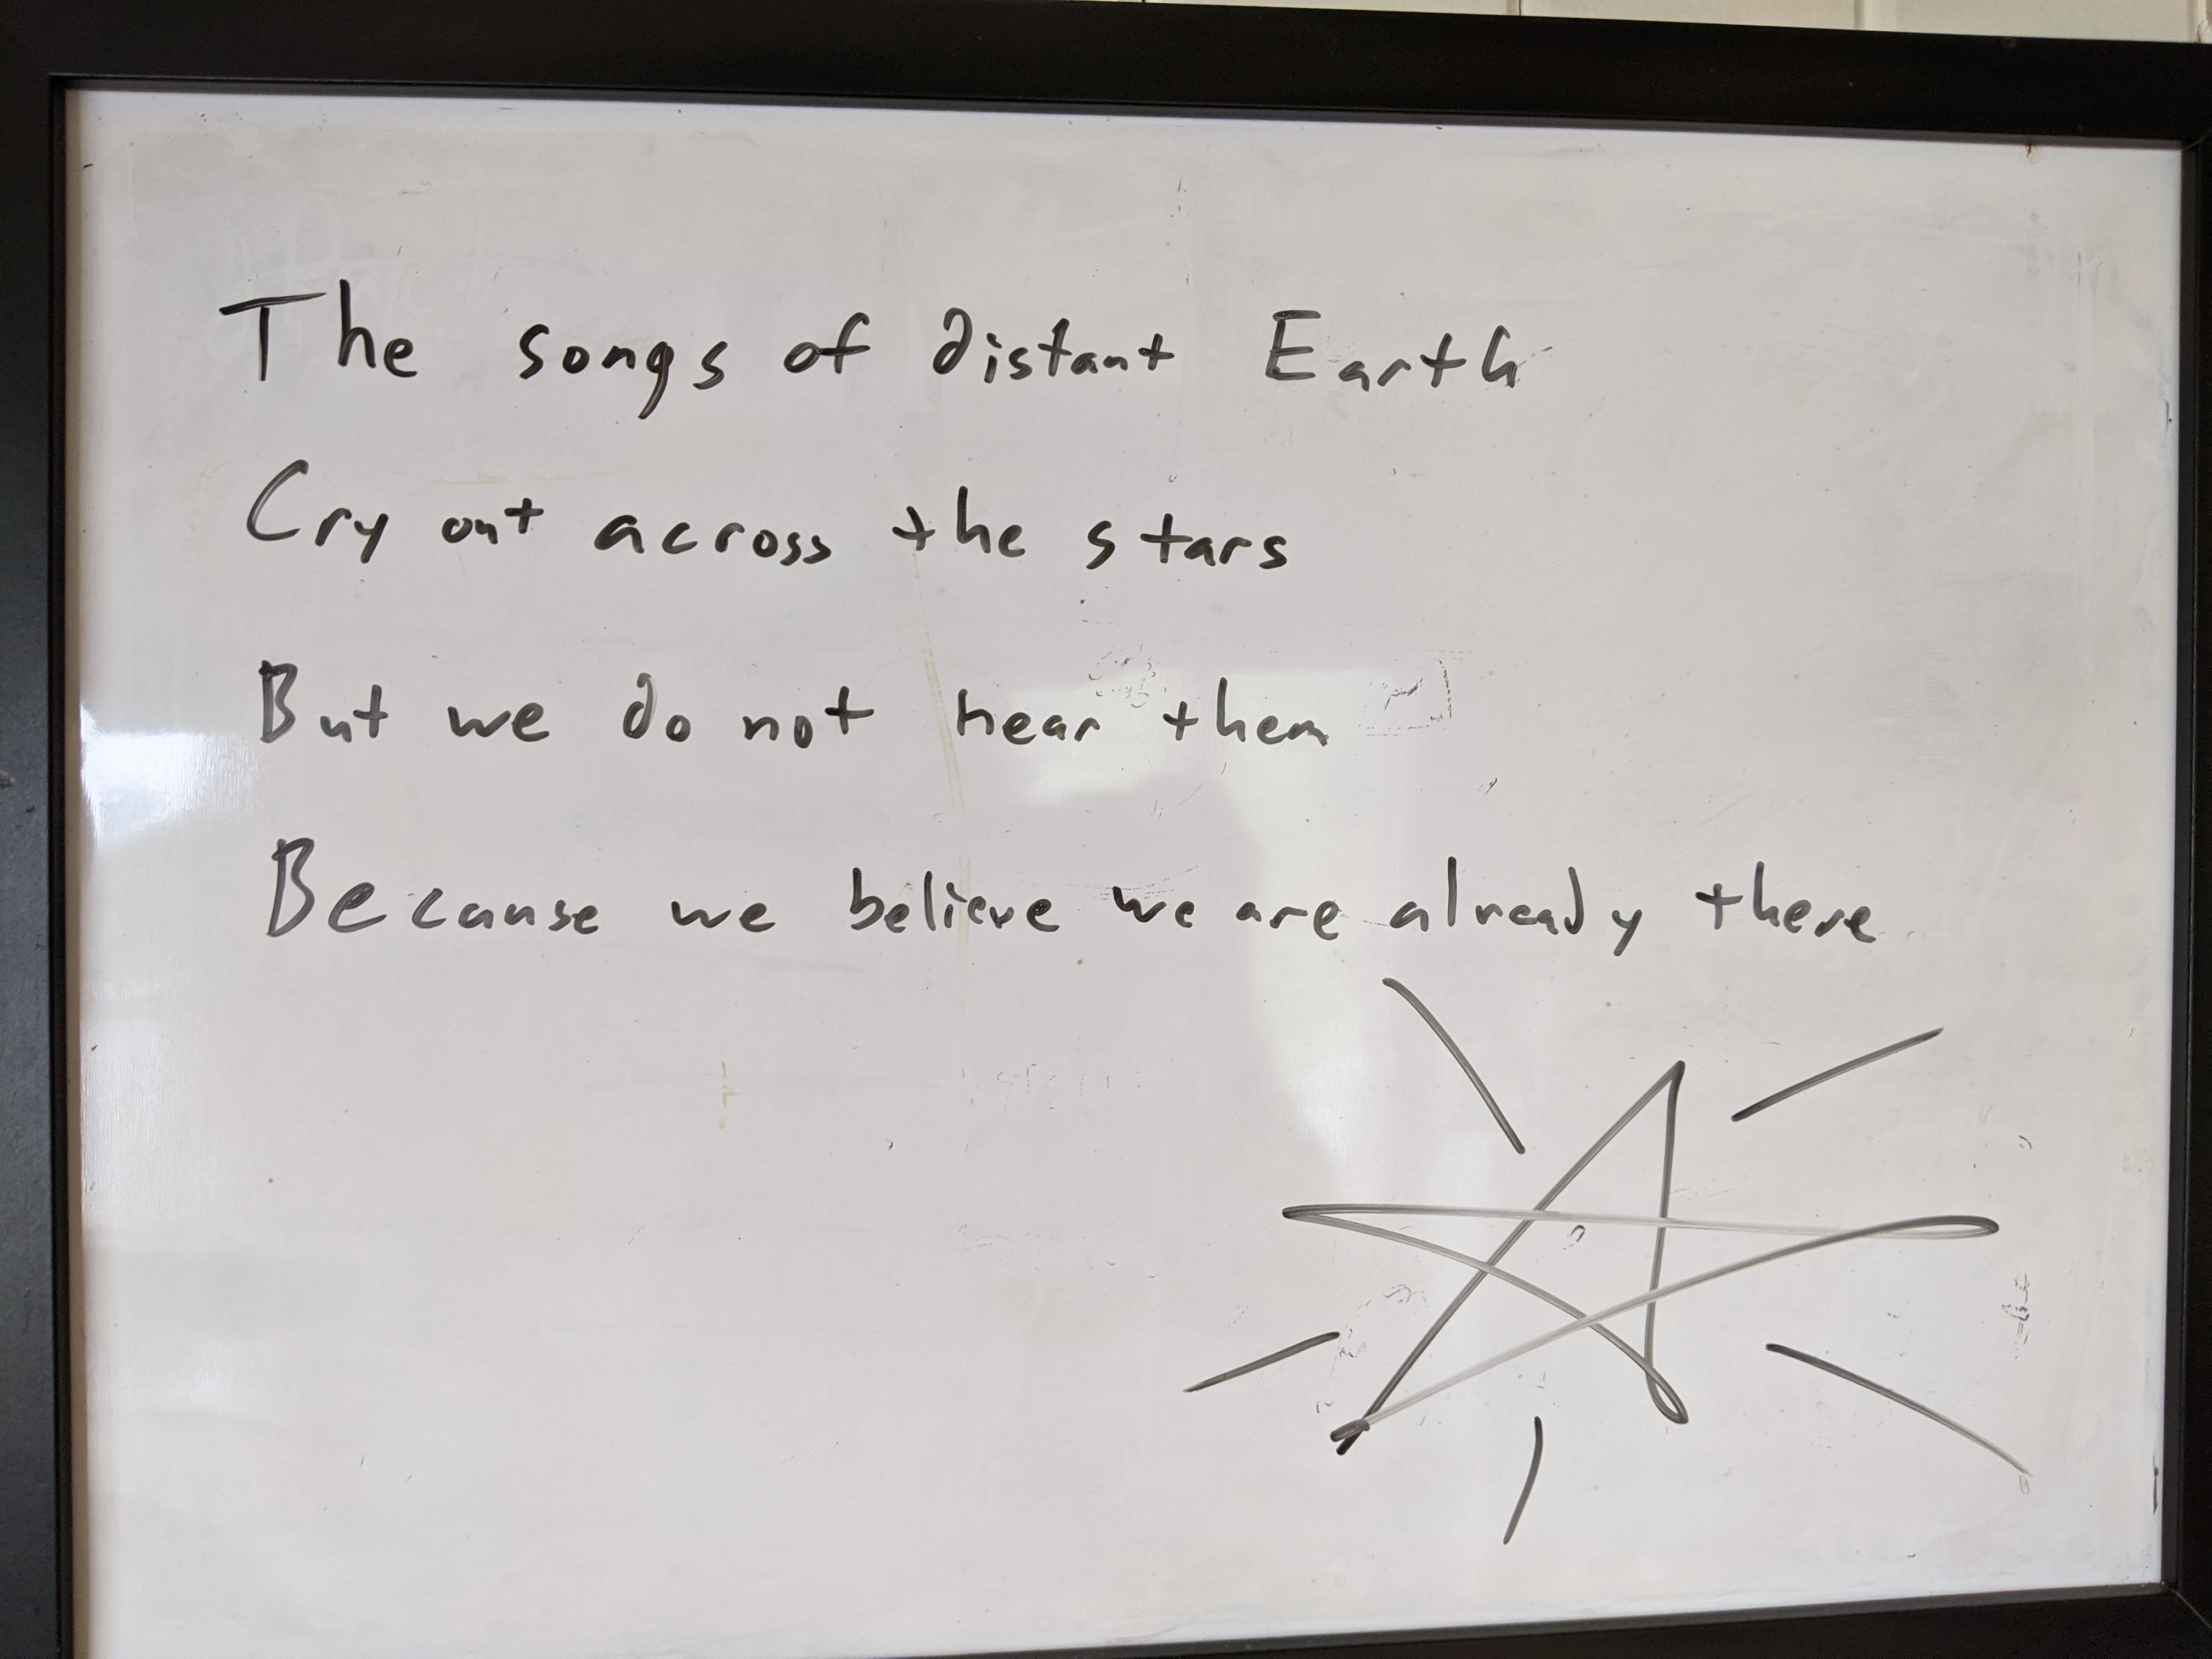 The songs of distant Earth
Cry out across the stars
But we do not hear them
Because we believe we are already there